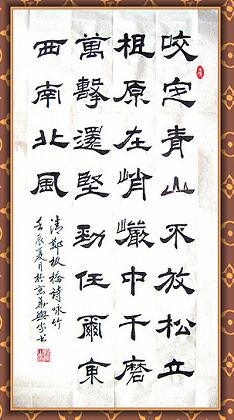 咬定青山不放松立
根原在峭巖中千磨
萬擊還堅勁任爾東
西南北風
清鄭板橋詩咏竹
壬辰夏月於京